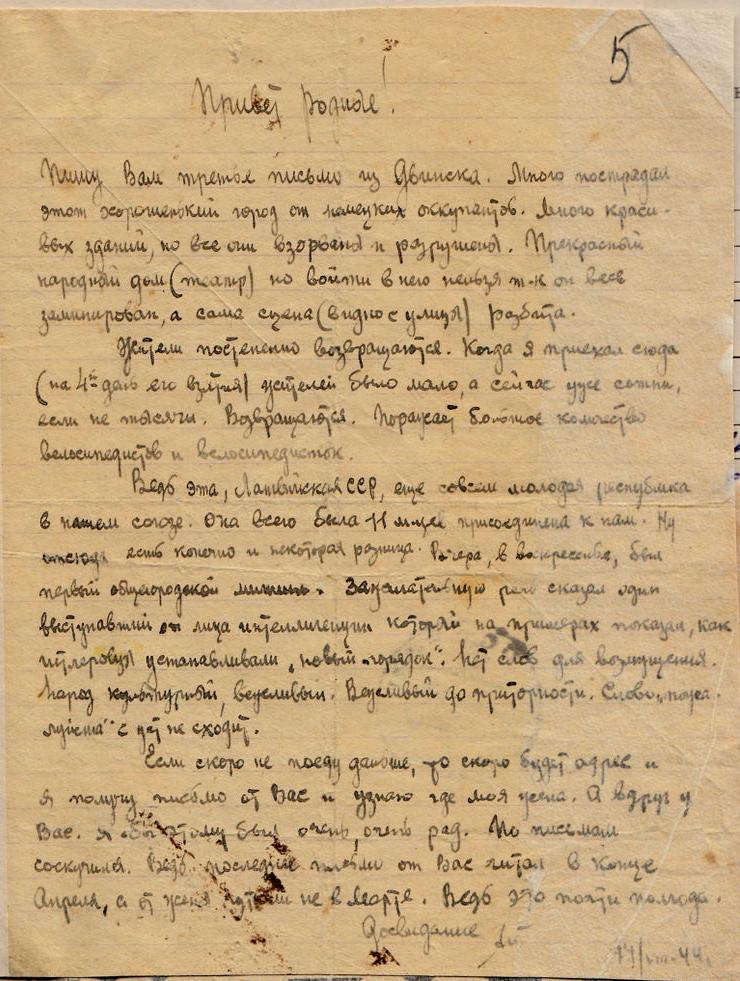 5
Привет родные!
Пишу Вам третье письмо из Двинска. Много пострадал
этот хорошенький город от немецких оккупантов. Много краси-
вых зданий, но все они взорваны и разрушены. Прекрасный
народный дом (театр) но войти в него нельзя т-к он весь
заминирован, а сама сцена (видно с улицы) разбита.
Жители постепенно возвращаются. Когда я приехал сюда
(на 4ый день его взятия) жителей было мало, а сейчас уже сотни,
если не тысячи. Возвращаются. Поражает большое количество
велосипедистов и велосипедисток.
Ведь эта, Латвийская ССР, еще совсем молодая республика
в нашем союзе. Она всего была 11 м-цев присоединена к нам. Ну
отсюда есть конечно и некоторая разница. Вчера, в воскресенье, был
первый общегородской митинг. Замечательную речь сказал один
выступавший от лица интеллигенции который на примерах показал, как
гитлеровцы устанавливали „новый порядок". Нет слов для возмущения.
Народ культурный, вежливый. Вежливый до приторности. Слово „пожа-
луйста" с уст не сходит.
Если скоро не поеду дальше, то скоро будет адрес и
я получу письмо от Вас и узнаю где моя жена. А вдруг у
Вас. Я бы этому был очень, очень рад. По письмам
соскучился. Ведь последние письмо от Вас читал в конце
Апреля, а от жены чуть ли не в Марте. Ведь это почти полгода.
Досвидание
14/VIII-44г.